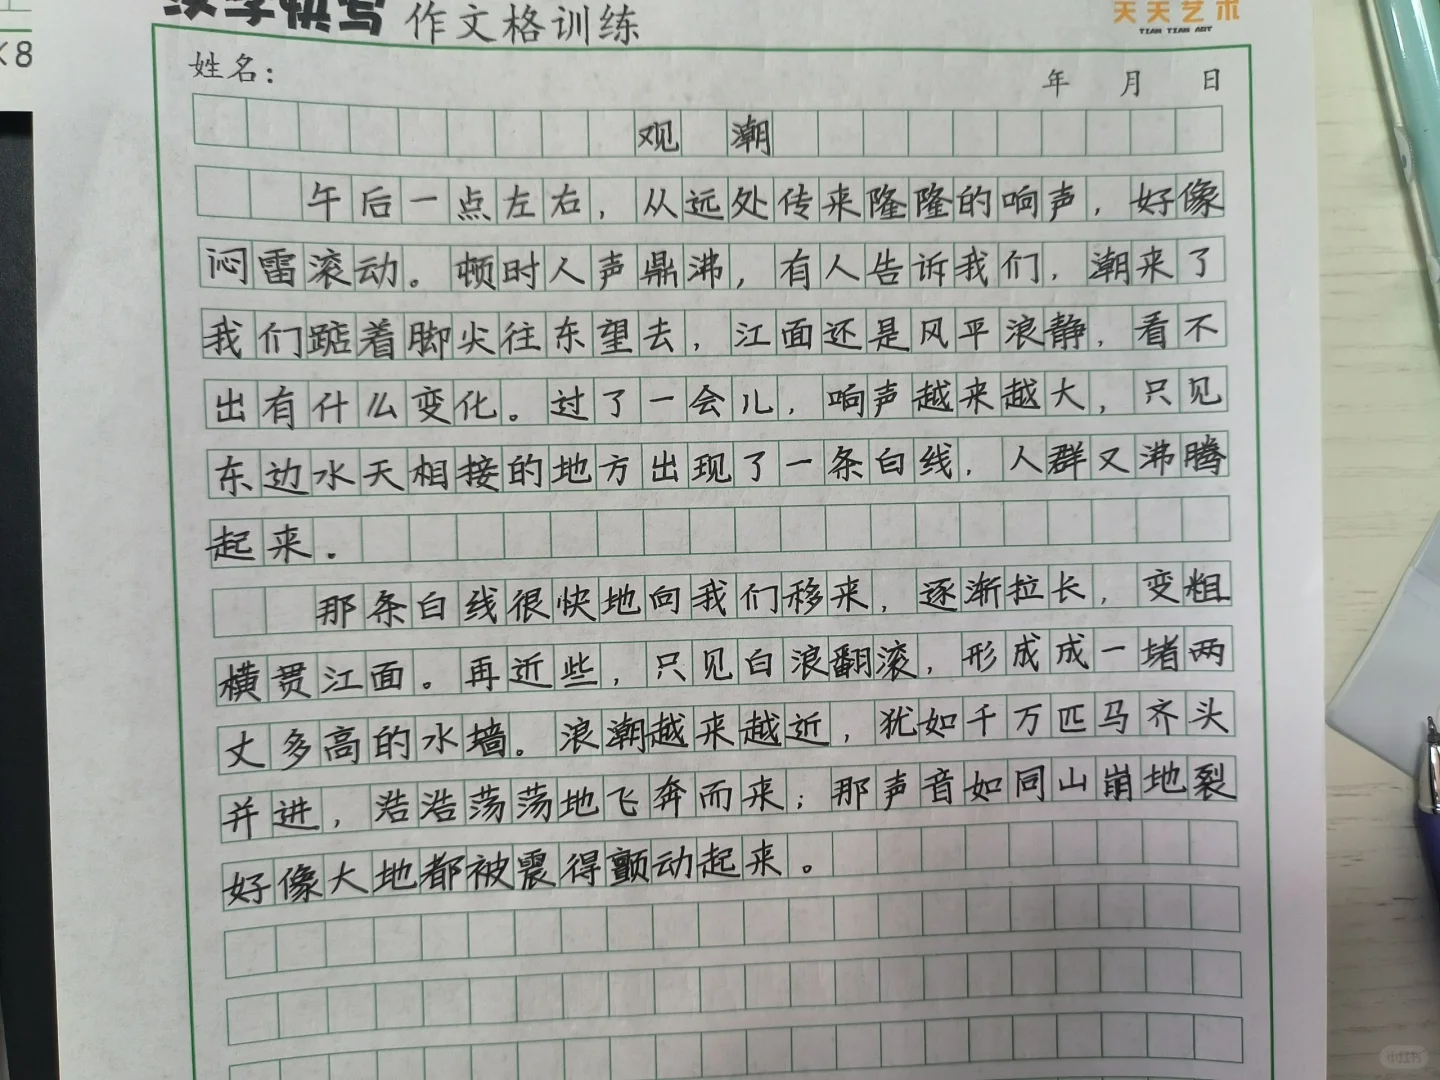 汉字快写 作文格训练
天天艺术
TIAN TIAN ART
×8
姓名：
年 月 日
观 潮
午后一点左右，从远处传来隆隆的响声，好像
闷雷滚动。顿时人声鼎沸，有人告诉我们，潮来了
我们踮着脚尖往东望去，江面还是风平浪静，看不
出有什么变化。过了一会儿，响声越来越大，只见
东边水天相接的地方出现了一条白线，人群又沸腾
起来。
那条白线很快地向我们移来，逐渐拉长，变粗
横贯江面。再近些，只见白浪翻滚，形成成一堵两
丈多高的水墙。浪潮越来越近，犹如千万匹马齐头
并进，浩浩荡荡地飞奔而来；那声音如同山崩地裂
好像大地都被震得颤动起来。
小红书